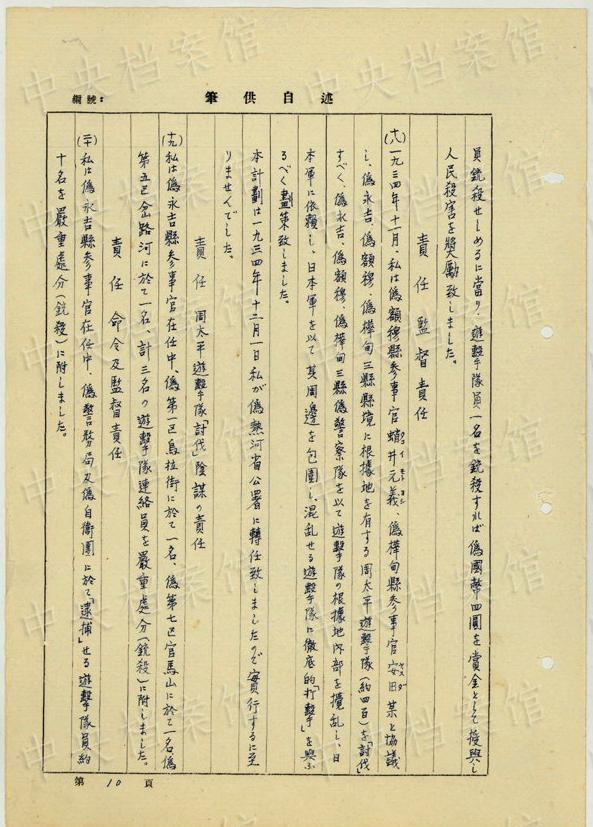 編號：
筆供自述
員銃殺せしめるに當り、遊擊隊員一名を銃殺すれば偽國幣四圓を賞金として授與し
人民殺害を獎勵致しました。
責任 監督責任
(十八)一九三四年十一月、私は偽額穆縣參事官蠐井元義、偽樺甸縣參事官安田某と協議
し、偽永吉、偽額穆、偽樺甸三縣縣境に根據地を有する周太平遊擊隊(約四百)を「討伐」
すべく、偽永吉、偽額穆、偽樺甸三縣偽警察隊を以て遊擊隊の根據地內部を攪乱し、日
本軍に依賴し、日本軍を以て其周邊を包圍し、混乱せる遊擊隊に徹底的「打擊」を與ふ
るべく畫策致しました。
本計劃は一九三四年十二月一日私が偽熱河省公署に轉任致しましたので實行するに至
りませんでした。
責任 周太平遊擊隊「討伐」陰謀の責任
(十九)私は偽永吉縣參事官在任中、偽第一区烏拉街に於て一名、偽第七区官馬山に於て一名偽
第五区岔路河に於て一名、計三名の遊擊隊連絡員を嚴重處分(銃殺)に附しました。
責任 命令及監督責任
(二十)私は偽永吉縣參事官在任中、偽警務局及偽自衛團に於て「逮捕」せる遊擊隊員約
十名を嚴重處分(銃殺)に附しました。
第 10 頁
中央档案馆